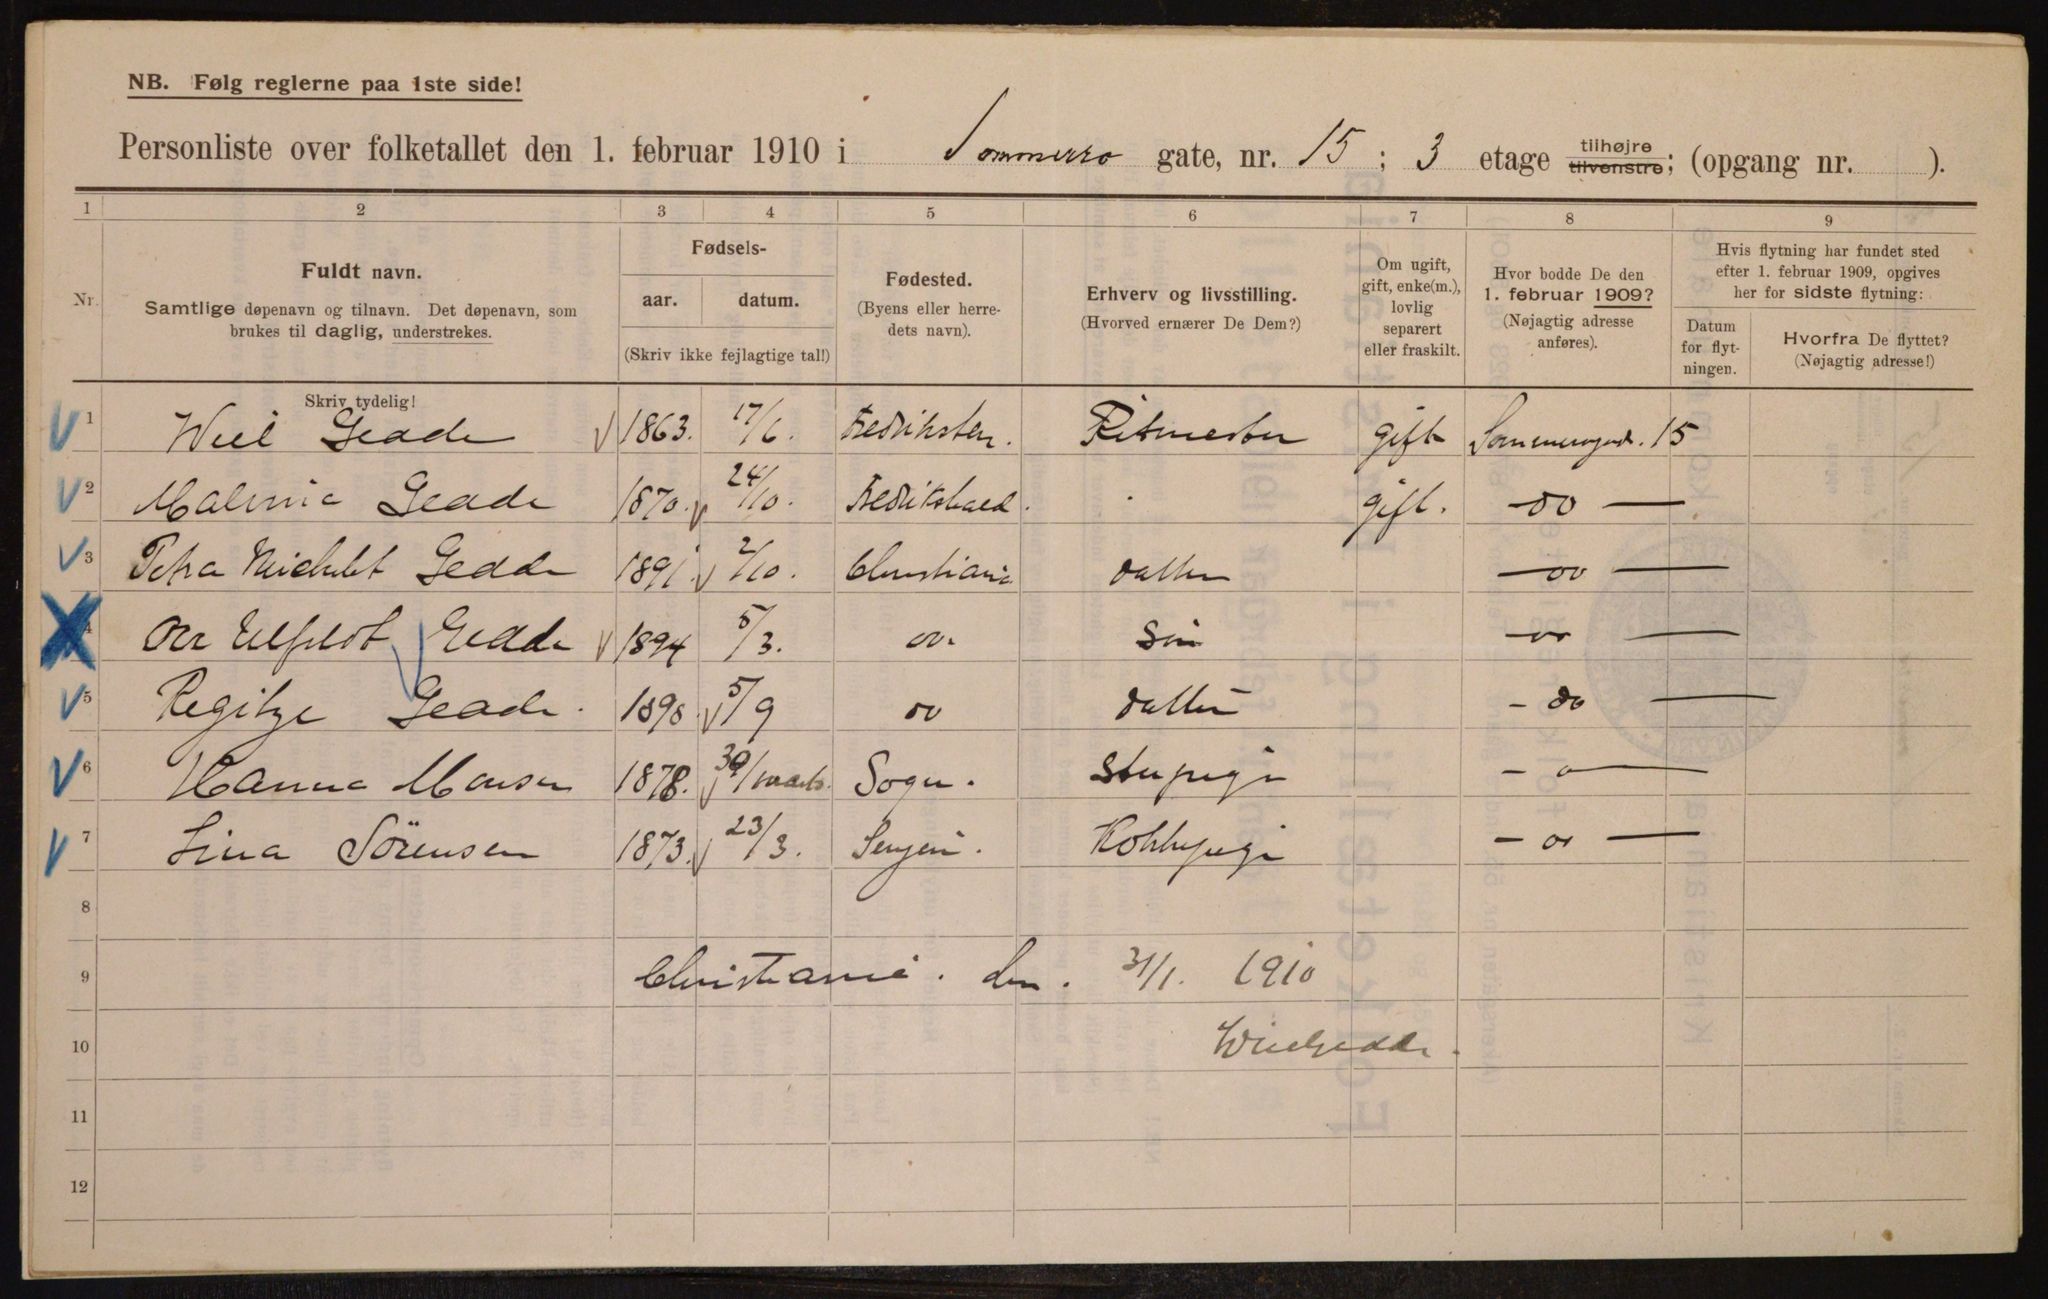 NB. Følg reglerne paa 1ste side!
Personliste over folketallet den 1. februar 1910 i Sommerro gate, nr. 15 ; 3 etage tilhøjre tilvenstre; (opgang nr. ).
1 2 3 4 5 6 7 8 9
Nr. Fuldt navn. Samtlige døpenavn og tilnavn. Det døpenavn, som brukes til daglig, understrekes.
Fødsels- aar. datum. (Skriv ikke fejlagtige tal!)
Fødested. (Byens eller herredets navn).
Erhverv og livsstilling. (Hvorved ernærer De Dem?)
Om ugift, gift, enke(m.), lovlig separert eller fraskilt.
Hvor bodde De den 1. februar 1909? (Nøjagtig adresse anføres).
Hvis flytning har fundet sted efter 1. februar 1909, opgives her for sidste flytning:
Datum for flytningen. Hvorfra De flyttet? (Nøjagtig adresse!)
Skriv tydelig!
1 Gedde 1863. 17/6. Fredriksten. Ritmester gift 15
2 Gedde 1870. 24/10. Fredrikshald. gift. do —
3 Petra Michelet Gedde 1891. 2/10. Christiania datter do —
4 Gedde 1894 5/3. do. Søn do —
5 Regitze Gedde. 1898. 5/9 do datter - do —
6 Hanna Monsen 1878. 30/marts. Sogn. Stuepige - o —
7 Lina Sörensen 1873. 23/3. Senjen. Kokkepige - do —
8
9 Christiania. den. 31/1. 1910
10 Gedde.
11
12